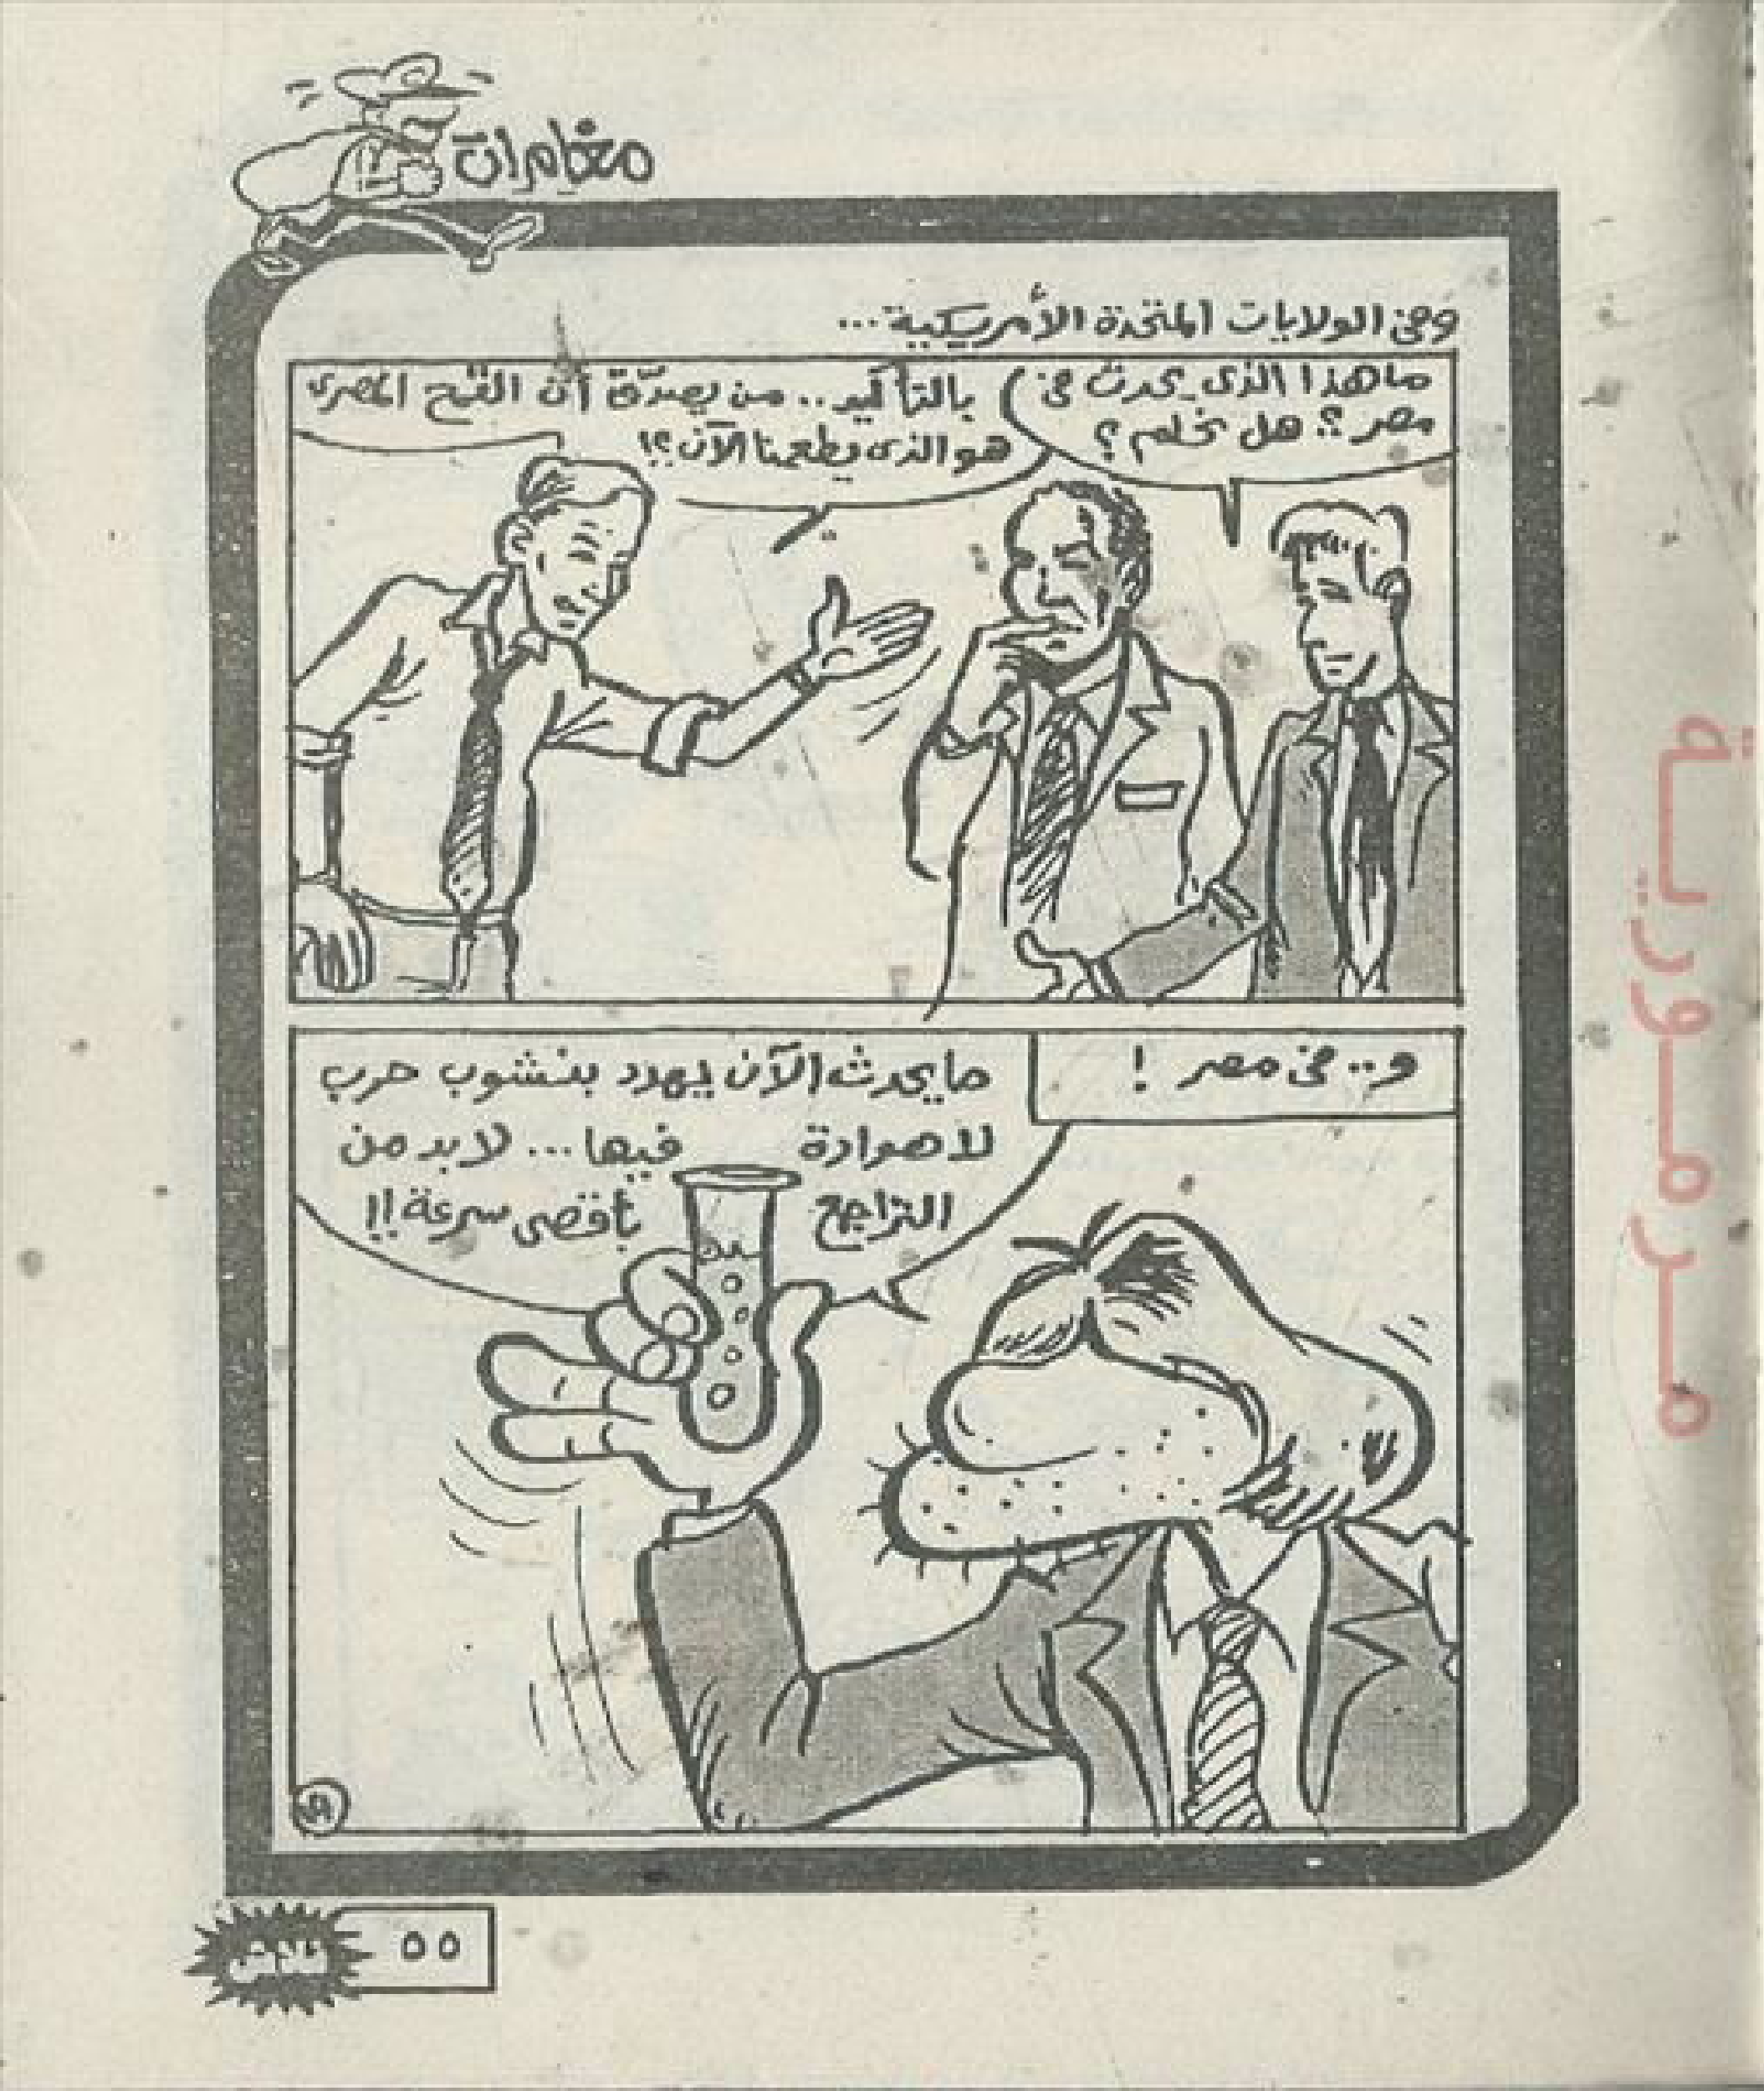 مغامرات
وفى الولايات المتحدة الأمريكية...
ما هذا الذى يحدث فى
مصر؟ هل نحلم؟
بالتأكيد.. من يصدّق أن القمح المصرى
هو الذى يطعمنا الآن؟!
و.. فى مصر !
ما يحدث الآن يهدد بنشوب حرب
لا هوادة فيها... لا بد من
التراجع بأقصى سرعة!!
فلاش
٥٥
مرمورية